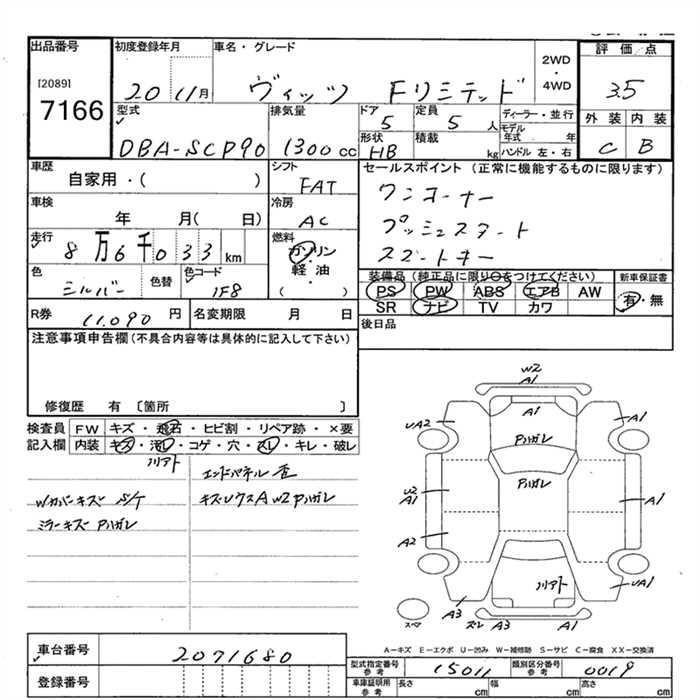 出品番号
[2089]
7166
初度登録年月
20 11月
車名・グレード
ヴィッツ Fリミテッド
2WD
・
4WD
評価点
3.5
外装 内装
C B
型式
DBA-SCP90
排気量
1300cc
ドア
5
定員
5 人
形状
HB
積載
kg
ディーラー・並行
モデル年式 年
ハンドル 左・右
車歴
自家用・( )
シフト
FAT
車検
年 月( 日)
冷房
AC
走行
8万6千033km
燃料
ガソリン
・
軽油
( )
色
シルバー
色替
色コード
1F8
セールスポイント(正常に機能するものに限ります)
ワンオーナー
プッシュスタート
スマートキー
装備品(純正品に限り○をつけてください)
PS PW ABS エアB AW
SR ナビ TV カワ
新車保証書
有・無
R券 11,090 円
名変期限 月 日
後日品
注意事項申告欄(不具合内容等は具体的に記入して下さい)
修復歴 有 〔箇所 〕
検査員記入欄
FW キズ・飛石・ヒビ割・リペア跡・×要
内装 キズ・汚れ・コゲ・穴・スレ・キレ・破レ
ノリアト
エンドパネル歪
Wカバーキズ S/T
ミラーキズ Pハガレ
W2
A1
A1
UA2
A1
Pハガレ
Pハガレ
U2
A1
A1
A2
ノリアト
UA1
A3
スペア
スレ A3 A1
A-キズ E-エクボ U-凹み W-補修跡 S-サビ C-腐食 XX-交換済
車台番号
2071680
登録番号
型式指定番号
参考
15011
類別区分番号
参考
0019
車庫証明用
参考
長さ cm
幅 cm
高さ cm